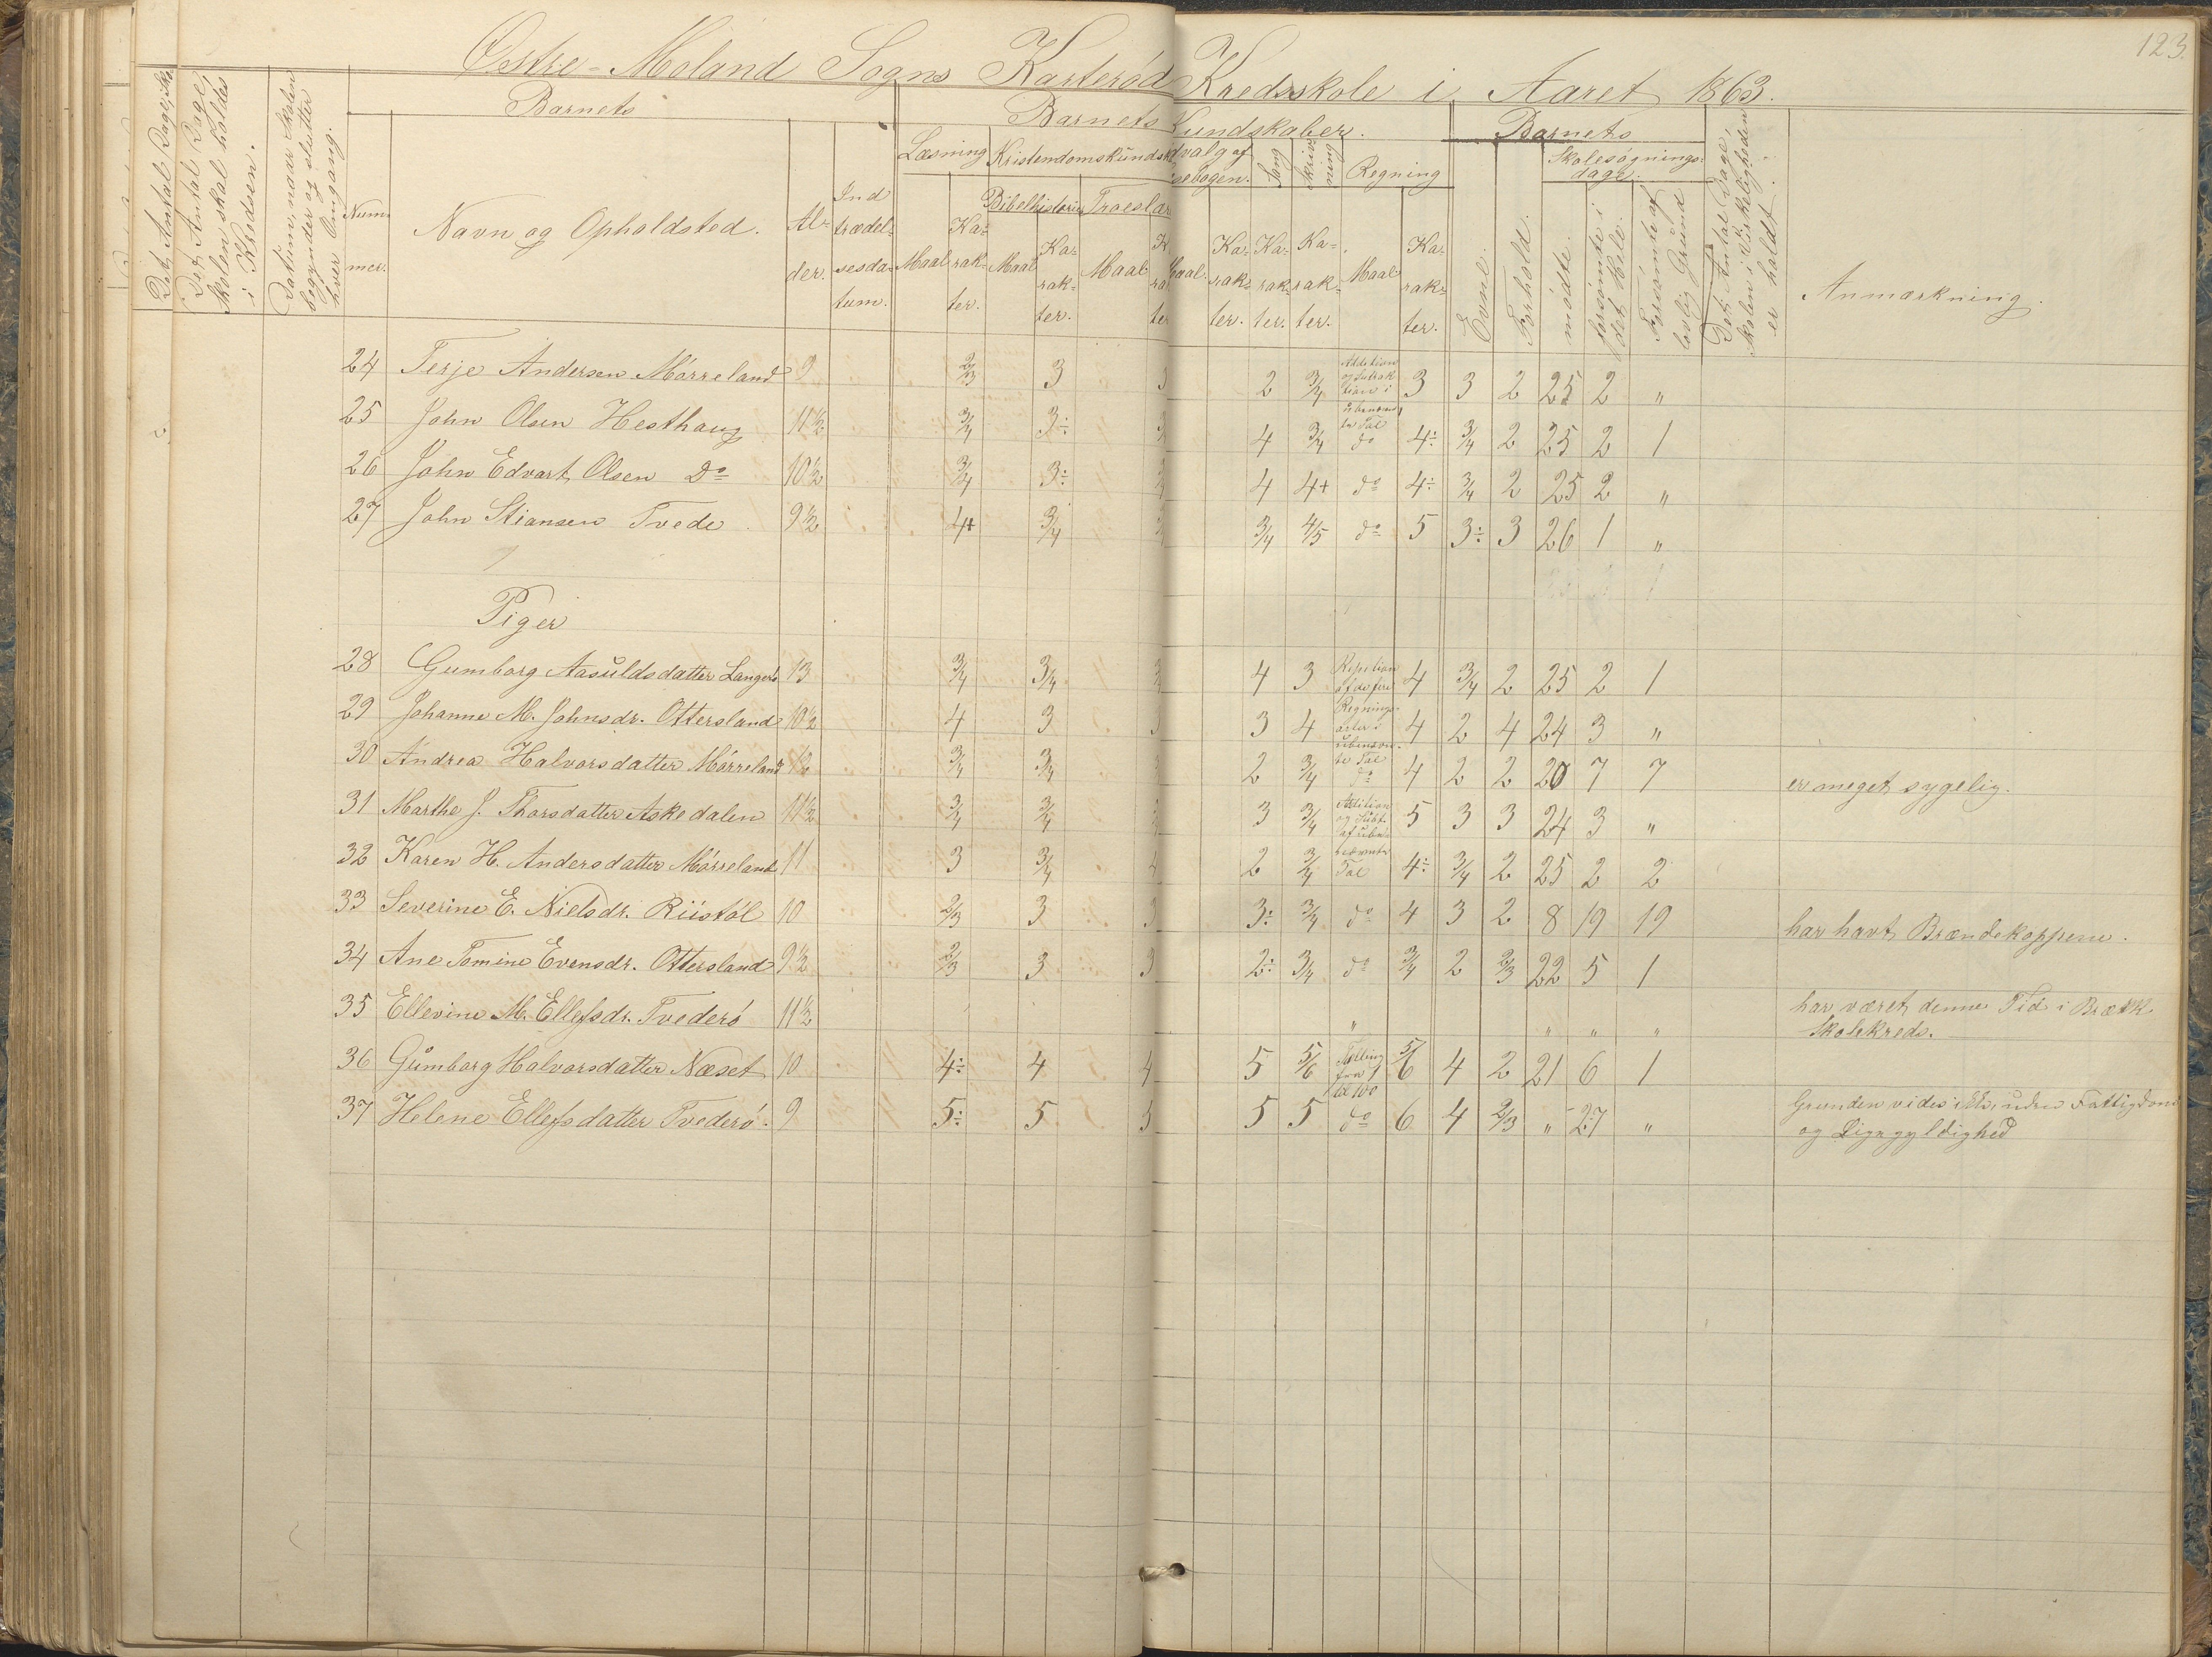 123.
Østre-Moland Sogns Karterød Kredsskole i Aaret 1863.
Det Antal Dage, Sko
Det Antal Dage, Skolen skal holdes i Kredsen.
Datum, naar Skolen begynder og slutter hver Omgang.
Barnets
Nummer.
Navn og Opholdsted.
Alder.
Indtrædelsesdatum.
Barnets Kundskaber.
Læsning
Maal
Karakter.
Kristendomskundsk
Bibelhistorie
Maal
Karakter.
Troeslær
Maal
dvalg af
sebogen.
Maal.
Karakter.
Sang
Karakter.
Skrivning
Karakter.
Regning
Maal
Karakter.
Barnets
Evne.
Forhold.
Skolesøgningsdage.
mødte.
forsømte i det Hele.
Forsømte af lovlig Grund
Det Antal Dage, Skolen i Virkeligheden er holdt.
Anmærkning.
24 Terje Andersen Mørreland 9 2/3 3 3 2 3/4 Addition og Subtraktion i ubenævnte Tal 3 3 2 25 2 "
25 John Olsen Hesthaug 11½ 3/4 3÷ 4 3/4 do 4÷ 3/4 2 25 2 1
26 John Edvart Olsen Do 10½ 3/4 3÷ 4 4+ do 4÷ 3/4 2 25 2 "
27 John Stiansen Tvede 9½ 4+ 3/4 3/4 4/5 do 5 3÷ 3 26 1 "
Piger
28 Gumborg Aasuldsdatter Langerø 13 3/4 3/4 4 3 4 3/4 2 25 2 1
29 Johanne M. Johnsdr. Ottersland 10½ 4 3 3 3 4 4 2 4 24 3 "
30 Andrea Halvorsdatter Mørreland 3/4 3/4 2 3/4 do 4 2 2 20 7 7 er meget sygelig.
31 Marthe J. Thorsdatter Askedalen 11½ 3/4 3/4 3 3/4 Addition og Subt. af 5 3 3 24 3 "
32 Karen H. Andersdatter Mørreland 11 3 3/4 4 2 3/4 Tal 4÷ 3/4 2 25 2 2
33 Severine E. Nielsdr. Riistøl 10 2/3 3 3 3÷ 3/4 do 4 3 2 8 19 19 har havt Brændekoppene.
34 Ane Tomine Evensdr. Ottersland 9½ 2/3 3 3 2÷ 3/4 do 3/4 2 2/3 22 5 1
35 Ellevine M. Ellefsdr. Tvederø 11½ " " " " har været denne Tid i Brækk
Skolekreds.
36 Gumborg Halvorsdatter Næset 10 4÷ 4 4 5 5/6 Tælling fra 1 til 100 5/6 4 2 21 6 1
37 Helene Ellefsdatter Tvederø. 9 5÷ 5 5 5 5 do 6 4 2/3 " 27 " Grunden vides ikke, uden Fattigdom
og Ligegyldighed